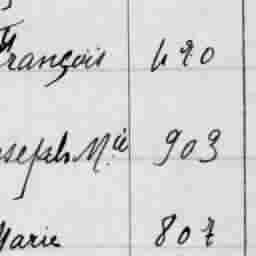 François 420
Joseph M.ie 903
Marie 807